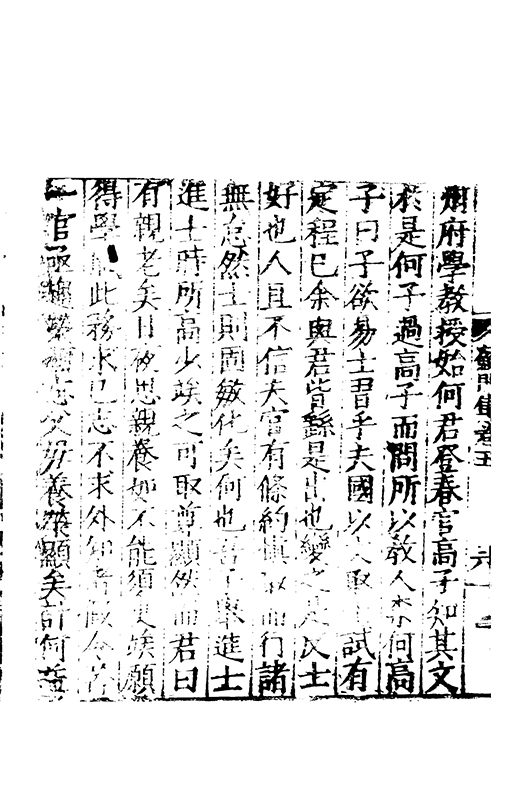 蘇門集卷五
州府學教授始何君登春官高子知其文
於是何子過高子而問所以教人奈何高
子曰子欲易士習乎夫國以人取士試有
定程已余與君皆繇是出也變之是民士
好也人且不信夫官有條約慎取而行諸
無怠然士則固敏化矣何也君子舉進士
進士時所高少竢之可取尊顯然而君曰
有親老矣日夜思親養如不能須臾竢願
得學此務求己志不求外知者
一官志父母養榮顯矣計何益